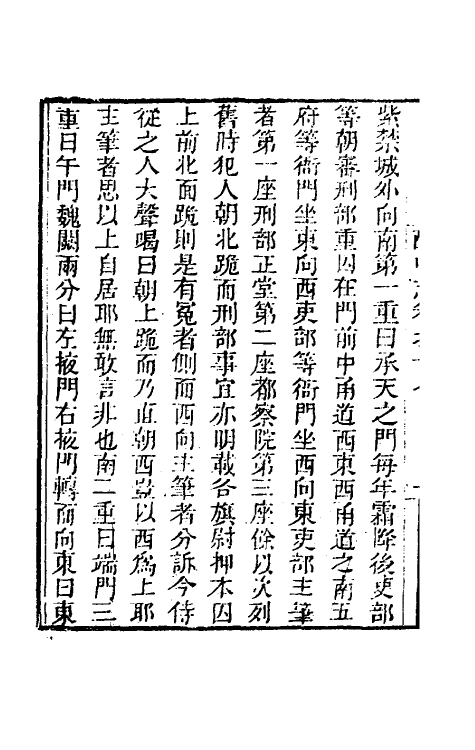 紫禁城外向南第一重曰承天之門每年霜降後吏部
等朝審刑部重囚在門前中甬道西東西甬道之南五
府等衙門坐東向西吏部等衙門坐西向東吏部主筆
者第一座刑部正堂第二座都察院第三座餘以次列
舊時犯人朝北跪而刑部事宜亦明載各旗尉押本囚
上前北面跪則是有冤者側而西向主筆者分訴今侍
從之人大聲喝曰朝上跪而乃直朝西豈以西爲上耶
主筆者思以上自居耶無敢言非也南二重曰端門三
重曰午門魏闕兩分曰左掖門右掖門轉而向東曰東